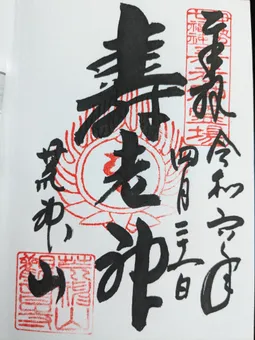 奉拝
令和六年
四月二十一日
壽老神
荒神山